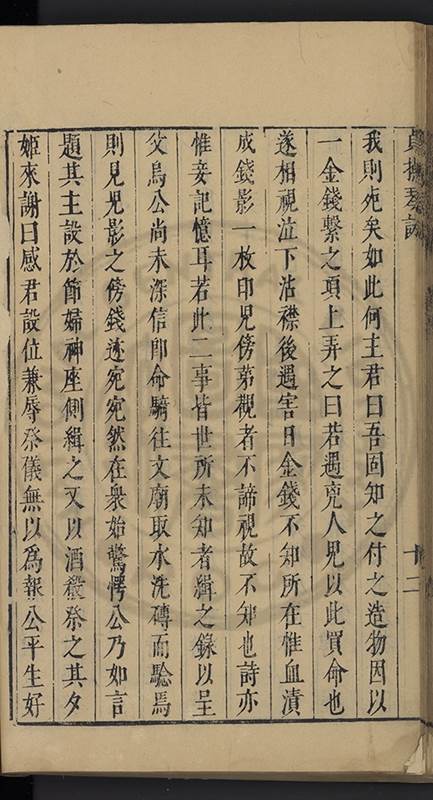 我則死矣如此何主君曰吾固知之付之造物因以
一金錢繫之項上弄之曰若遇兇人兒以此買命也
遂相視泣下沾襟後遇害日金錢不知所在惟血漬
成錢影一枚印兒傍第觀者不諦視故不知也詩亦
惟妾記憶耳若此二事皆世所未知者緝之錄以呈
父烏公尚未深信即命騎往文廟取水洗磚而驗焉
則見兒影之傍錢迹宛宛然在衆始驚愕公乃如言
題其主設於節婦神座側緝之又以酒殽祭之其夕
姬來謝曰感君設位兼辱祭儀無以爲報公平生好